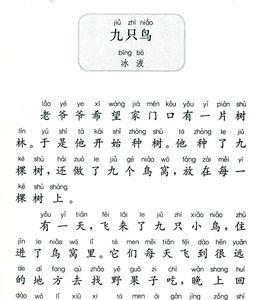 jiǔ zhī niǎo
九只鸟
bīng bō
冰波
lǎo yé ye xī wàng jiā mén kǒu yǒu yí piàn shù
老爷爷希望家门口有一片树
lín yú shì tā kāi shǐ zhòng shù tā zhòng le jiǔ
林。于是他开始种树。他种了九
kē shù hái zuò le jiǔ gè niǎo wō fàng zài měi yì
棵树，还做了九个鸟窝，放在每一
kē shù shàng
棵树上。
yǒu yì tiān fēi lái le jiǔ zhī xiǎo niǎo zhù
有一天，飞来了九只小鸟，住
jìn le niǎo wō lǐ tā men měi tiān fēi dào hěn yuǎn
进了鸟窝里。它们每天飞到很远
de dì fang qù zhǎo yě guǒ zi chī wǎn shang huí
的地方去找野果子吃，晚上回